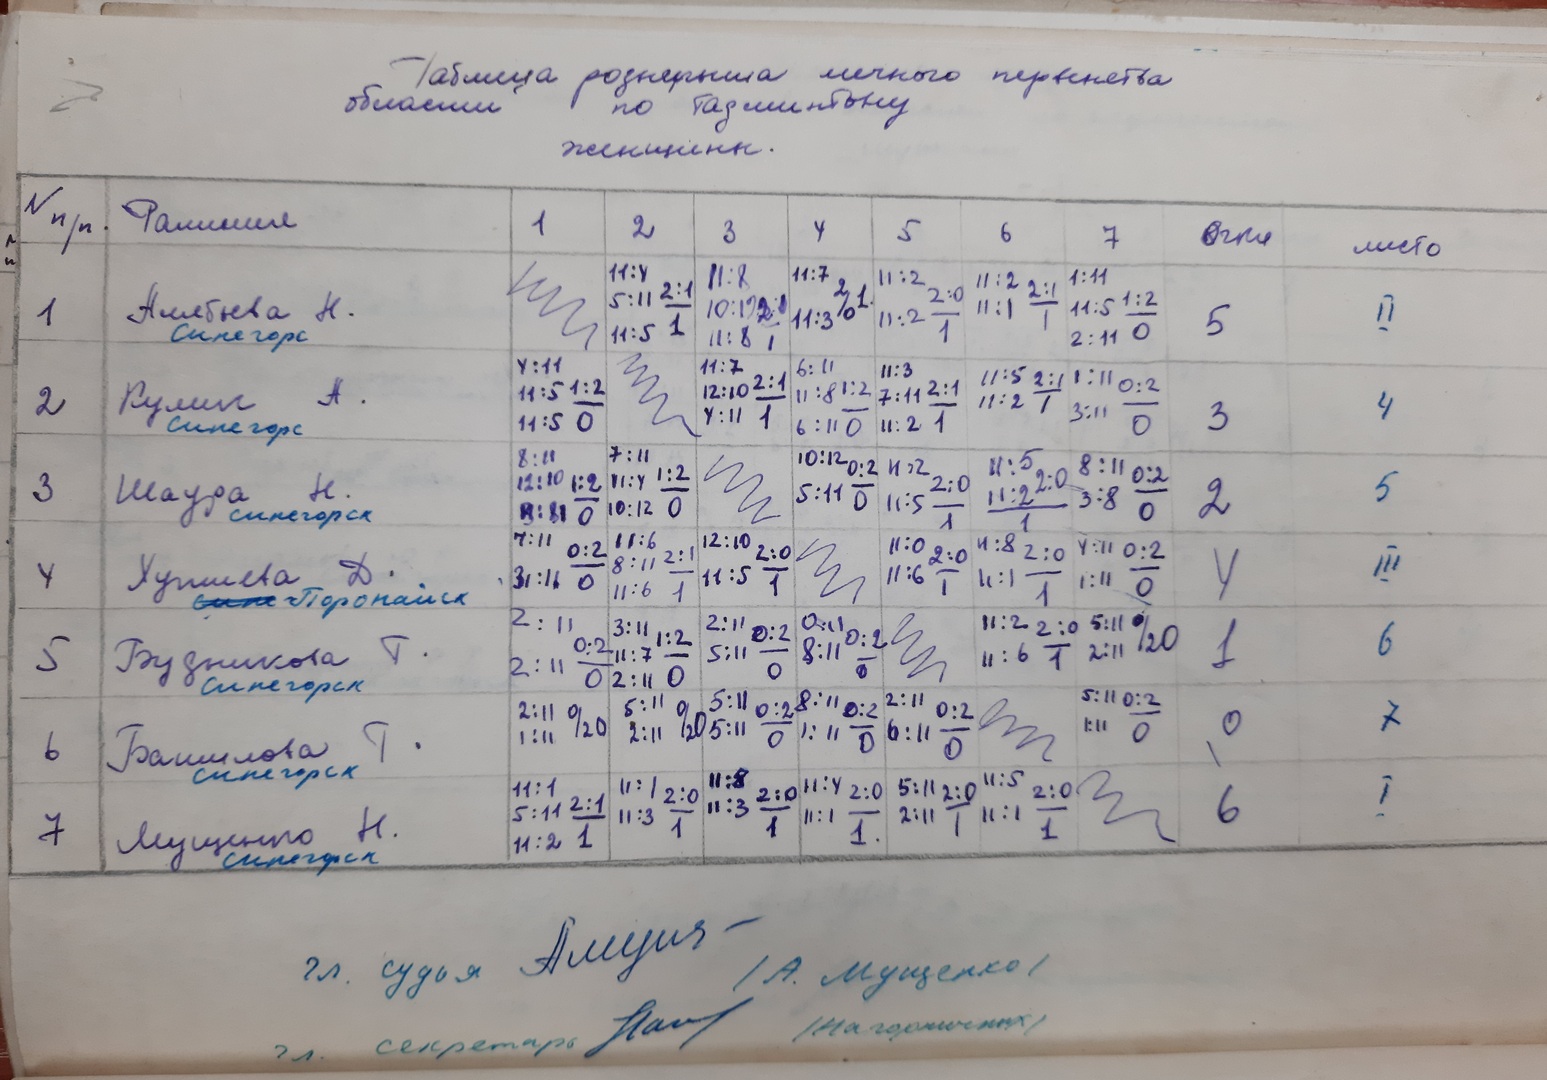 Таблица розыгрыша личного первенства
области по бадминтону
женщины.
N п/п. Фамилия 1 2 3 4 5 6 7 Очки место
1 Алябьева Н. 11:4 5:11 11:5 2:1 1 11:8 10:12 11:8 2:1 1 11:7 11:3 2/0 1. 11:2 11:2 2:0 1 11:2 11:1 2:1 1 1:11 11:5 2:11 1:2 0 5 II
Синегорс
2 Кулик А. 4:11 11:5 11:5 1:2 0 11:7 12:10 4:11 2:1 1 6:11 11:8 6:11 1:2 0 11:3 7:11 11:2 2:1 1 11:5 11:2 2:1 1 1:11 3:11 0:2 0 3 4
Синегорс
3 Шаура Н. 8:11 12:10 1:2 0 7:11 11:4 10:12 1:2 0 10:12 5:11 0:2 0 11:2 11:5 2:0 1 11:5 11:2 2:0 1 8:11 3:8 0:2 0 2 5
Синегорск
4 Д. 7:11 3:11 0:2 0 11:6 8:11 11:6 2:1 1 12:10 11:5 2:0 1 11:0 11:6 2:0 1 11:8 11:1 2:0 1 4:11 1:11 0:2 0 4 III
Поронайск
5 Будникова Т. 2:11 2:11 0:2 0 3:11 11:7 2:11 1:2 0 2:11 5:11 0:2 0 0:11 8:11 0:2 0 11:2 11:6 2:0 1 5:11 2:11 0/2 0 1 6
Синегорск
6 Башилова Т. 2:11 1:11 0/2 0 5:11 2:11 0/2 0 5:11 5:11 0:2 0 8:11 1:11 0:2 0 2:11 6:11 0:2 0 5:11 1:11 0:2 0 0 7
Синегорск
7 Мущенко Н. 11:1 5:11 11:2 2:1 1 11:1 11:3 2:0 1 11:8 11:3 2:0 1 11:4 11:1 2:0 1. 5:11 2:11 2:0 1 11:5 11:1 2:0 1 6 I
Синегорск
гл. судья /А. Мущенко/
гл. секретарь